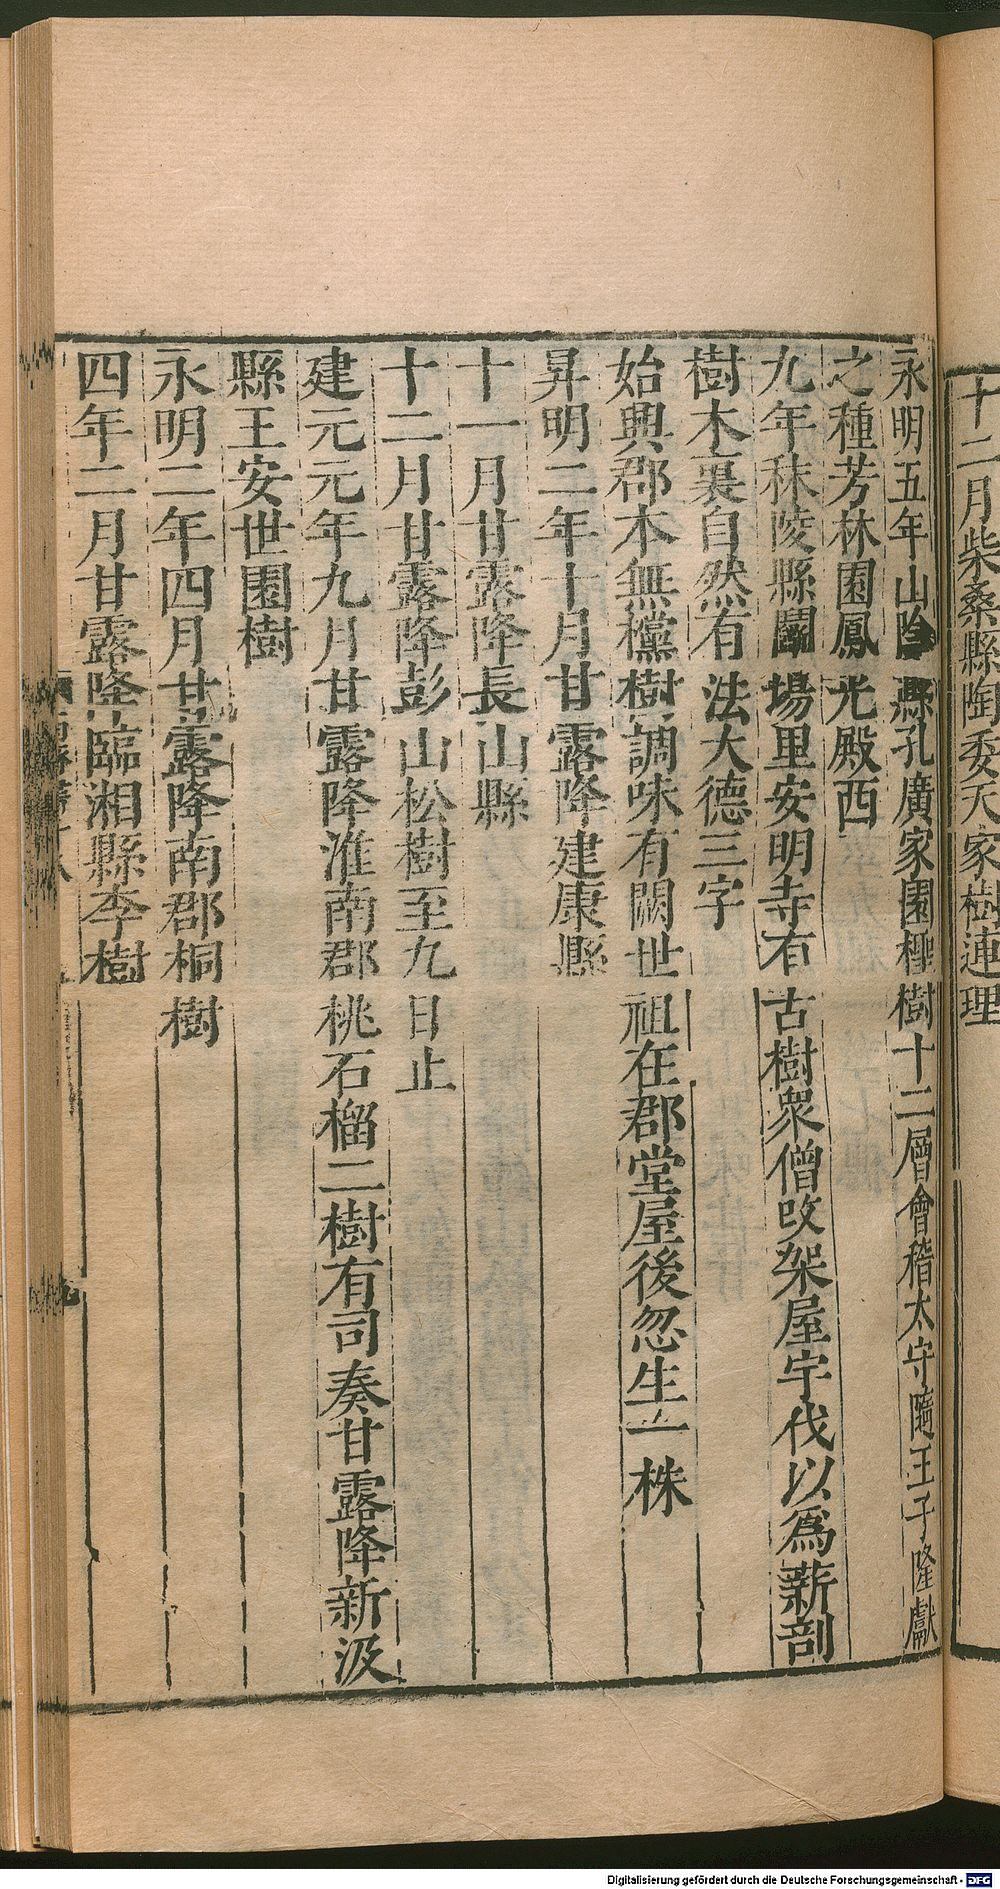 十二月柴桑縣陶委天家樹連理
永明五年山陰縣孔廣家園檉樹十二層會稽太守隨王子隆獻
之種芳林園鳳光殿西
九年秣陵縣鬭場里安明寺有古樹衆僧改架屋宇伐以爲薪剖
樹木裏自然有法大德三字
始興郡本無欓樹調味有闕世祖在郡堂屋後忽生一株
昇明二年十月甘露降建康縣
十一月甘露降長山縣
十二月甘露降彭山松樹至九日止
建元元年九月甘露降淮南郡桃石榴二樹有司奏甘露降新汲
縣王安世園樹
永明二年四月甘露降南郡桐樹
四年二月甘露降臨湘縣李樹
九
Digitalisierung gefördert durch die Deutsche Forschungsgemeinschaft - DFG